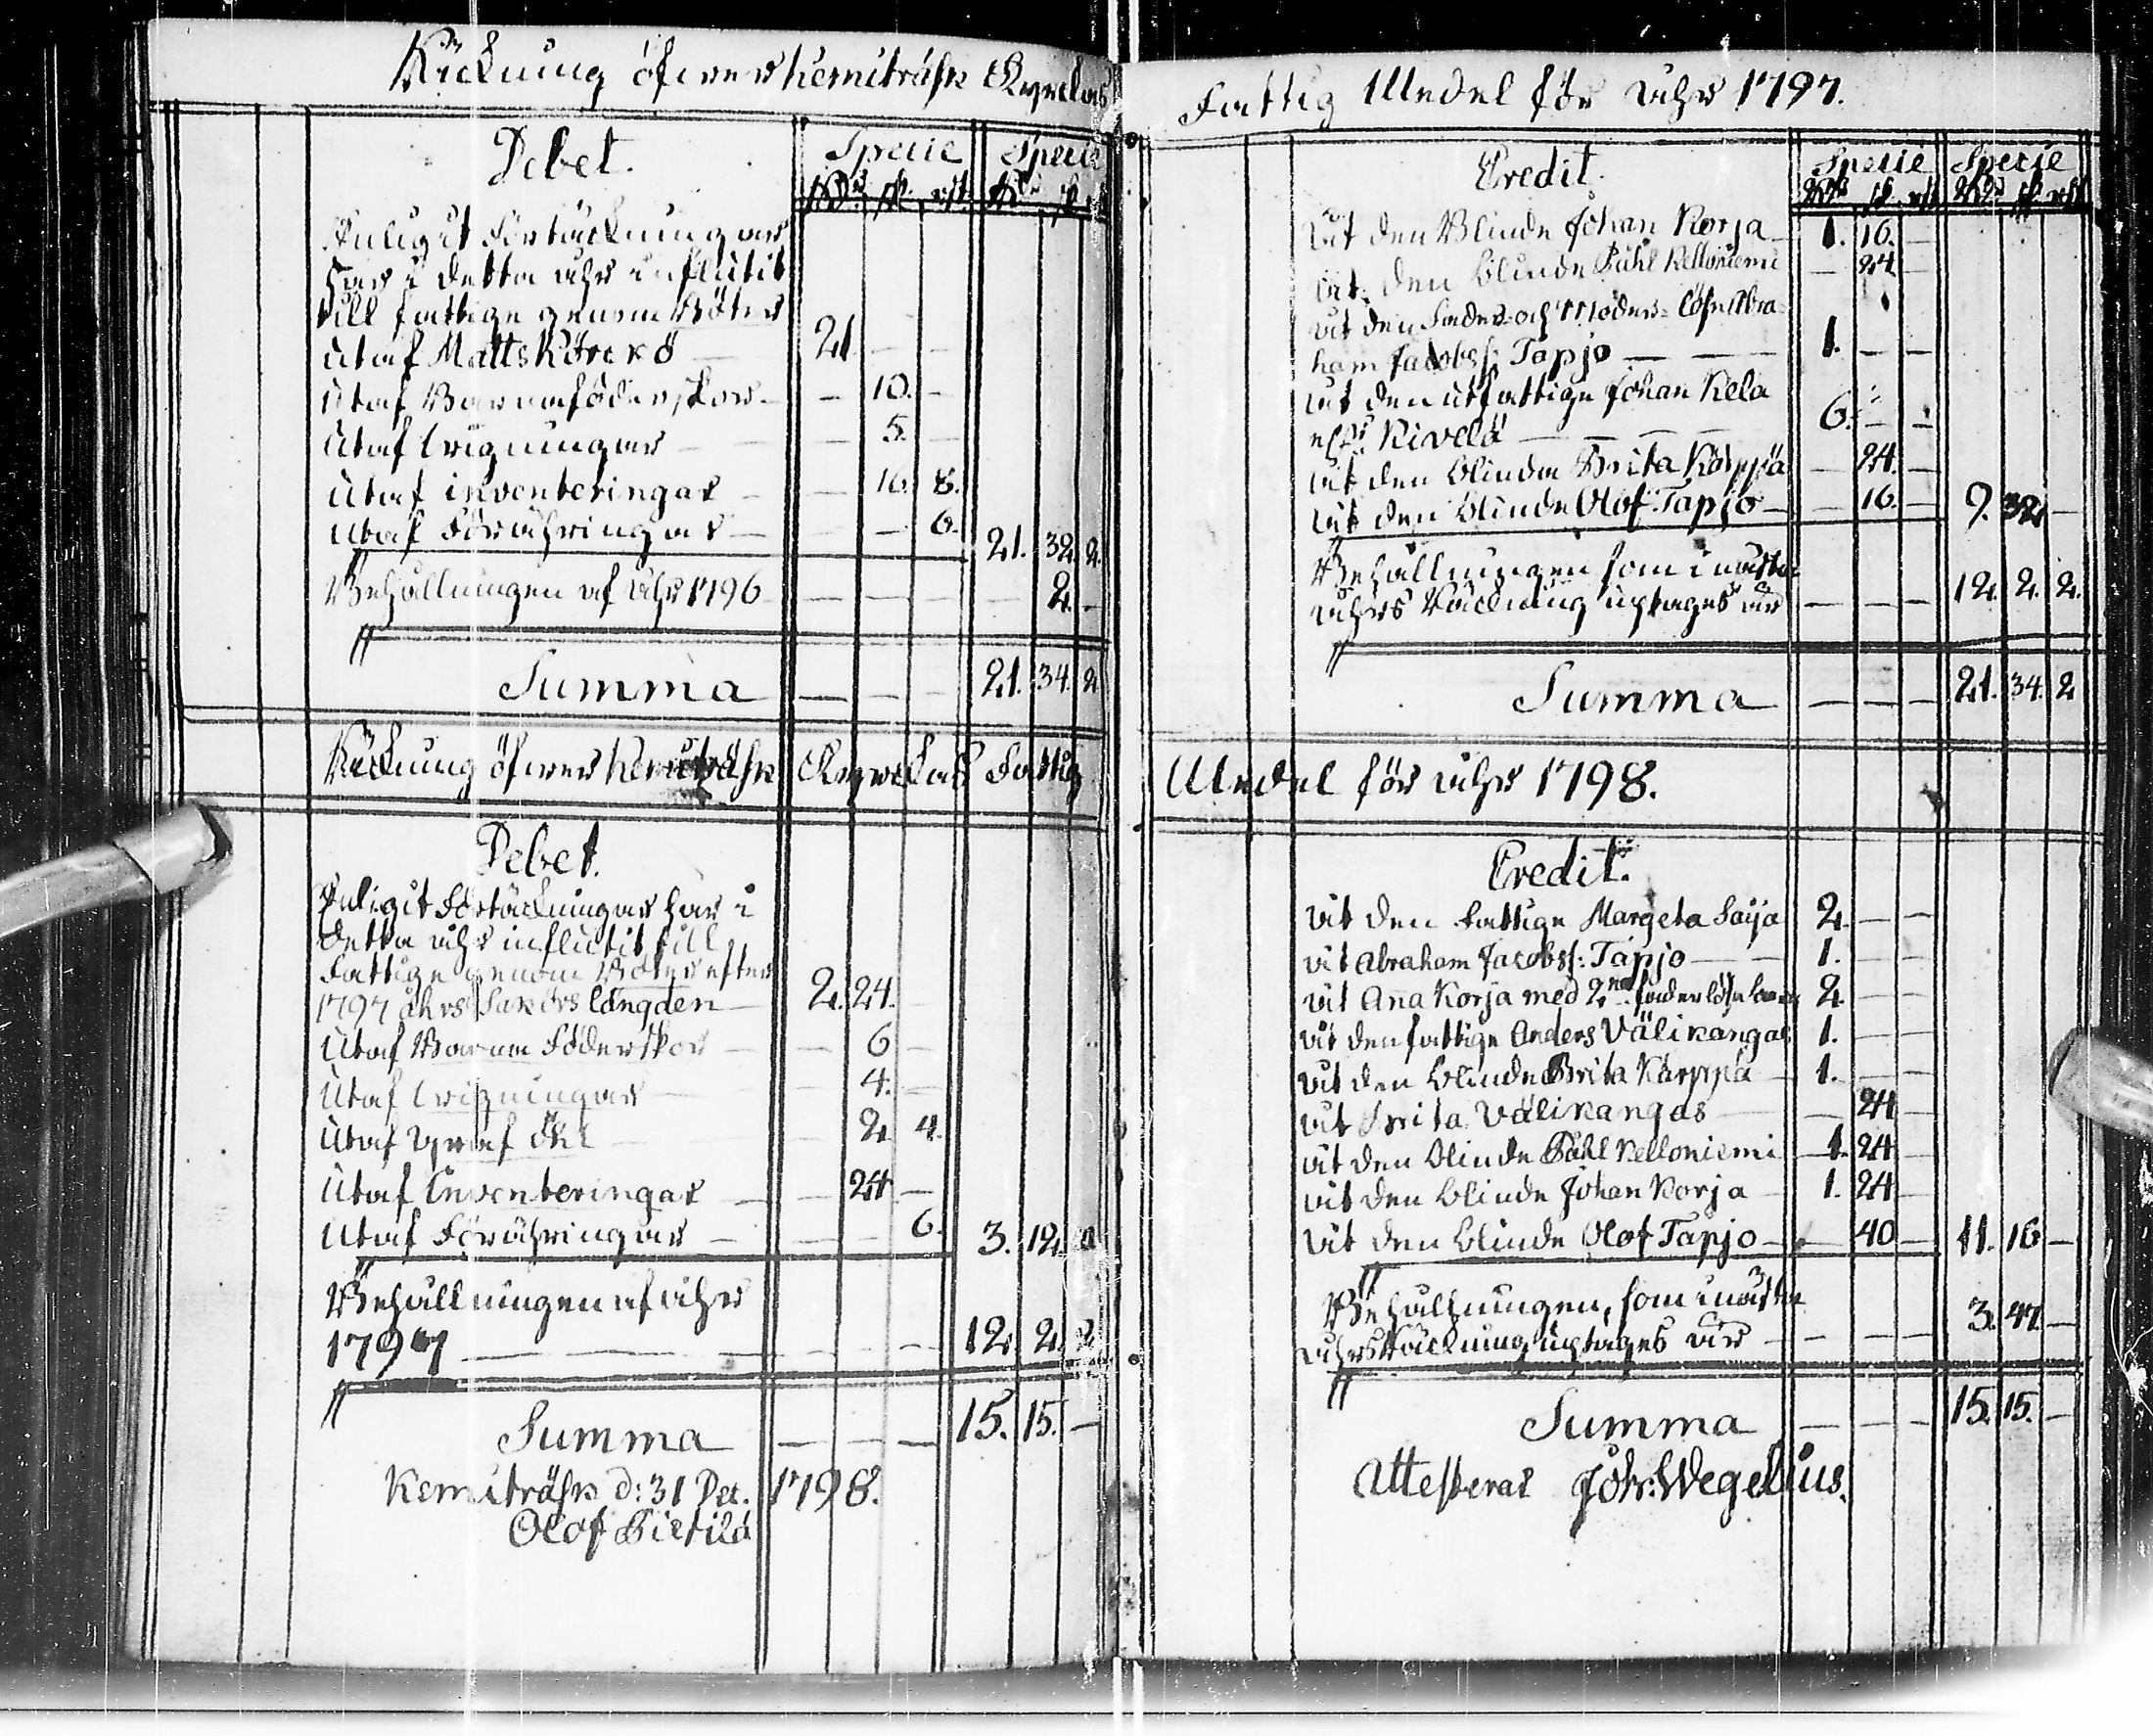 Räckning öfwer Kemiträsk Kyrckas
Debet. Specie Specie
Rd. sk. rst. Rd. sk. rst.
Enligit Förtäckningar
har i detta åhr inflütit
till fattige genom Böter
utaf Matts Körckö — 21 — —
Utaf Barnaföderskor — — 10. —
Utaf wigningar — — 5. —
Utaf inventeringar — — 16. 8.
Utaf Förähringar — — — 6. 21. 32. 2.
Behållningen af åhr 1796 — — — — 2. —
Summa — — — 21. 34. 2
Räckning öfwer Kemiträsk Kyrckas Fattig
Debet.
Enligit Förtäckningar har i
detta åhr inflütit till
Fattige genom Böter efter
1797 åhrs Sakörs längden — 2. 24. —
Utaf Barna Föderskor — — 6 —
Utaf wigningar — — 4. —
Utaf — 2. 4.
Utaf Inventeringar — — 24 —
Utaf Förähringar — — — 6. 3. 12.
Behållningen af åhr
1797 — — — 12. 2. 2
Summa — — — 15. 15. —
Kemiträsk d: 31 Dec. 1798.
Olof Pietilä
Fattig Medel för åhr 1797.
Credit. Specie Specie
Rd. sk. rst. Rd. sk. rst.
åt den Blinde Johan Korja — 1. 16. —
åt den blinde Påhl Kelloniemi — 24 —
åt den Fader- och Moder-löse Abra-
ham Jacobss: Tapjo — — — 1. — —
åt den utfattige Johan Kela
Kivelä — — — 6. — —
åt den blinda Brita Kärppä — 24. —
åt den blinde Olof Tapjo — — 16. — 9. 32. —
Behållningen som i nästa
åhrs Räckning uptages är — — — 12. 2. 2.
Summa — — — 21. 34. 2
Medel för åhr 1798.
Credit.
åt den Fattige Margeta Saija 2. — —
åt Abraham Jacobss: Tapjo — — 1. — —
åt Ana Korja med 2ne faderlösa barn 2. — —
åt den fattige Anders Välikangas 1. — —
åt den blinde Brita Kärppä — 1. — —
åt Brita Välikangas — — 24 —
åt den blinde Påhl Kelloniemi — 1. 24 —
åt den blinde Johan Korja — 1. 24 —
åt den blinde Olof Tapjo — — 40 — 11. 16 —
Behållningen, som i nästa
åhrs Räckning uptages är — — — 3. 47. —
Summa — — — 15. 15. —
Attesteras Joh: Wegelius.